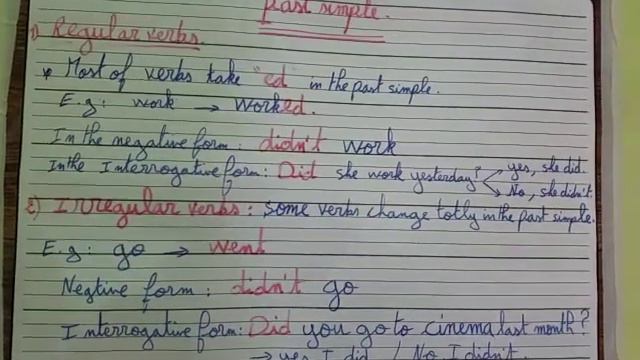 Past simple.
1) Regular verbs
* Most of verbs take "ed" in the past simple.
E.g: work → worked.
In the negative form: didn't work
In the Interrogative form: Did she work yesterday? yes, she did.
No, she didn't.
2) Irregular verbs: some verbs change totly in the past simple.
E.g: go → went
Negtive form: didn't go
Interrogative form: Did you go to cinema last month?
→ yes I did / No I didn't.